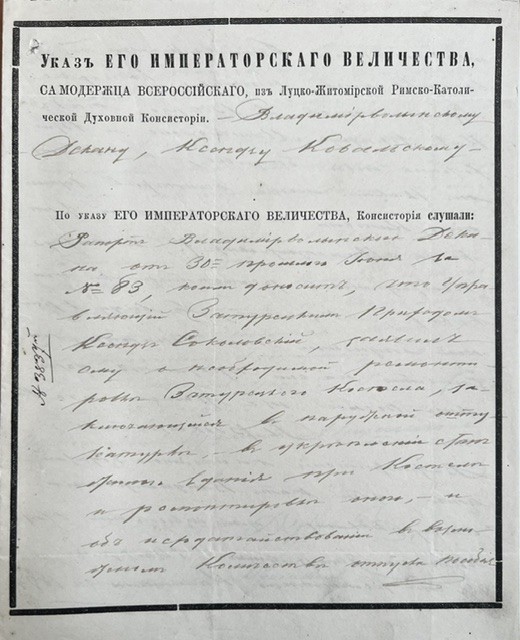 Указъ ЕГО ИМПЕРАТОРСКАГО ВЕЛИЧЕСТВА,
САМОДЕРЖЦА ВСЕРОССІЙСКАГО, изъ Луцко-Житомірской Римско-Католи-
ческой Духовной Консисторіи. Владимірволынскому
Декану, Ксендзу Ковальскому
По указу ЕГО ИМПЕРАТОРСКАГО ВЕЛИЧЕСТВА, Консисторія слушали:
Рапортъ Владимірволынскаго Дека-
на отъ 30 прошлаго Іюня за
№ 83, коимъ доноситъ, что Упра-
вляющій Затурецкимъ Приходомъ
Ксендзъ Соколовскій, заявилъ
ему о необходимой ремонти-
ровкѣ Затурецкаго Костела, за-
ключающейся въ наружной штук-
катуркѣ, въ укрѣпленіи
зданія при Костелѣ
и ремонтировкѣ оной, и
объ исходатайствованіи въ
количествѣ отпуска пособія